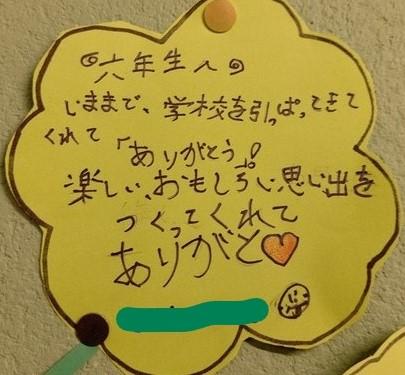 六年生へ
いままで、学校を引っぱってきて
くれて
「ありがとう」!
楽しい、おもしろい思い出を
つくってくれて
ありがと